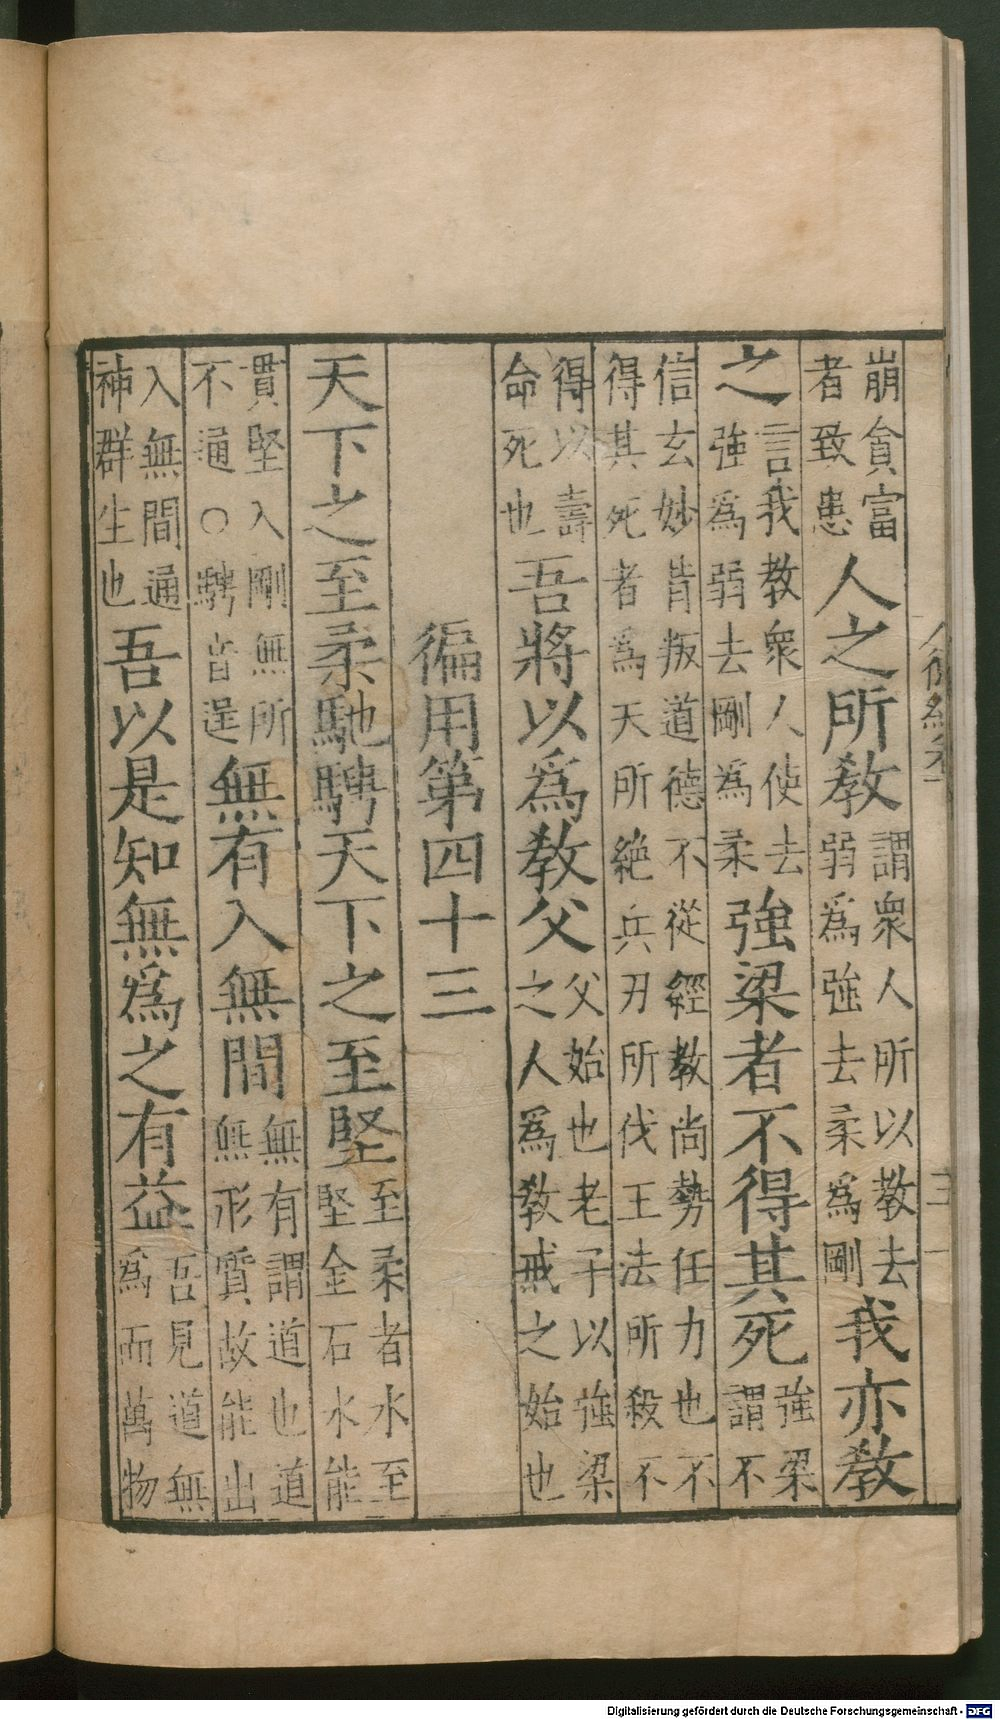 崩貪富者致患人之所教謂衆人所以教去弱爲強去柔爲剛我亦教
之言我教衆人使去強爲弱去剛爲柔強梁者不得其死強梁謂不
信玄妙背叛道德不從經教尚勢任力也不得其死者爲天所絶兵刃所伐王法所殺不
得以壽命死也吾將以爲教父父始也老子以強梁之人爲教戒之始也
徧用第四十三
天下之至柔馳騁天下之至堅至柔者水至堅金石水能
貫堅入剛無所不通○騁音逞無有入無間無有謂道也道無形質故能出
入無間通神群生也吾以是知無爲之有益吾見道無爲而萬物
Digitalisierung gefördert durch die Deutsche Forschungsgemeinschaft - DFG